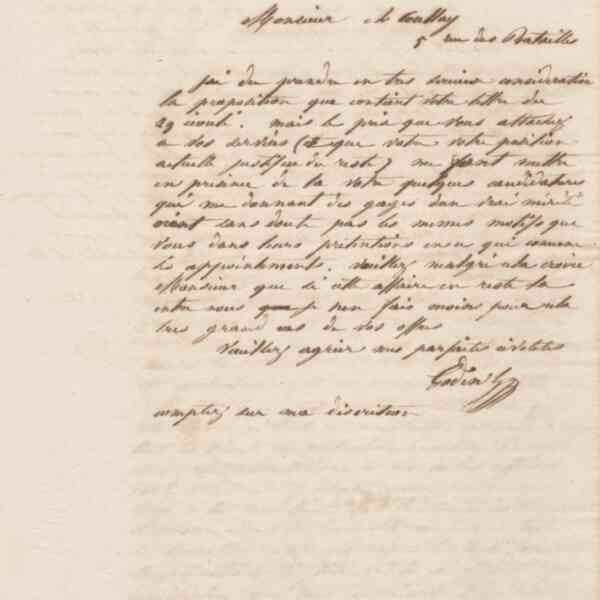 Monsieur de Coullay
5 rue des Batailles
jai du prendre en tres serieuse consideration
la proposition que contient votre lettre du
29 écoulé. mais le prix que vous attachez
a vos services (ce que votre position
actuelle justifie du reste) me font mettre
en présence de la votre quelques candidatures
qui me donnant des gages dun vrai mérite
nont sans doute pas les memes motifs que
vous dans leurs prétentions en ce qui concerne
les appointements. veuillez malgré cela croire
Monsieur que si cette affaire en reste la
entre nous je nen fais moins pour cela
tres grand cas de vos offres
Veuillez agréer mes parfaites civilités
Godin
comptez sur ma discretion